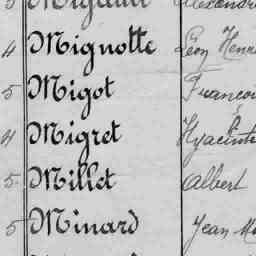 4 Mignotte Léon Henri
5 Migot Francois
4 Migret Hyacinthe
5 Millet Albert
5 Minard Jean